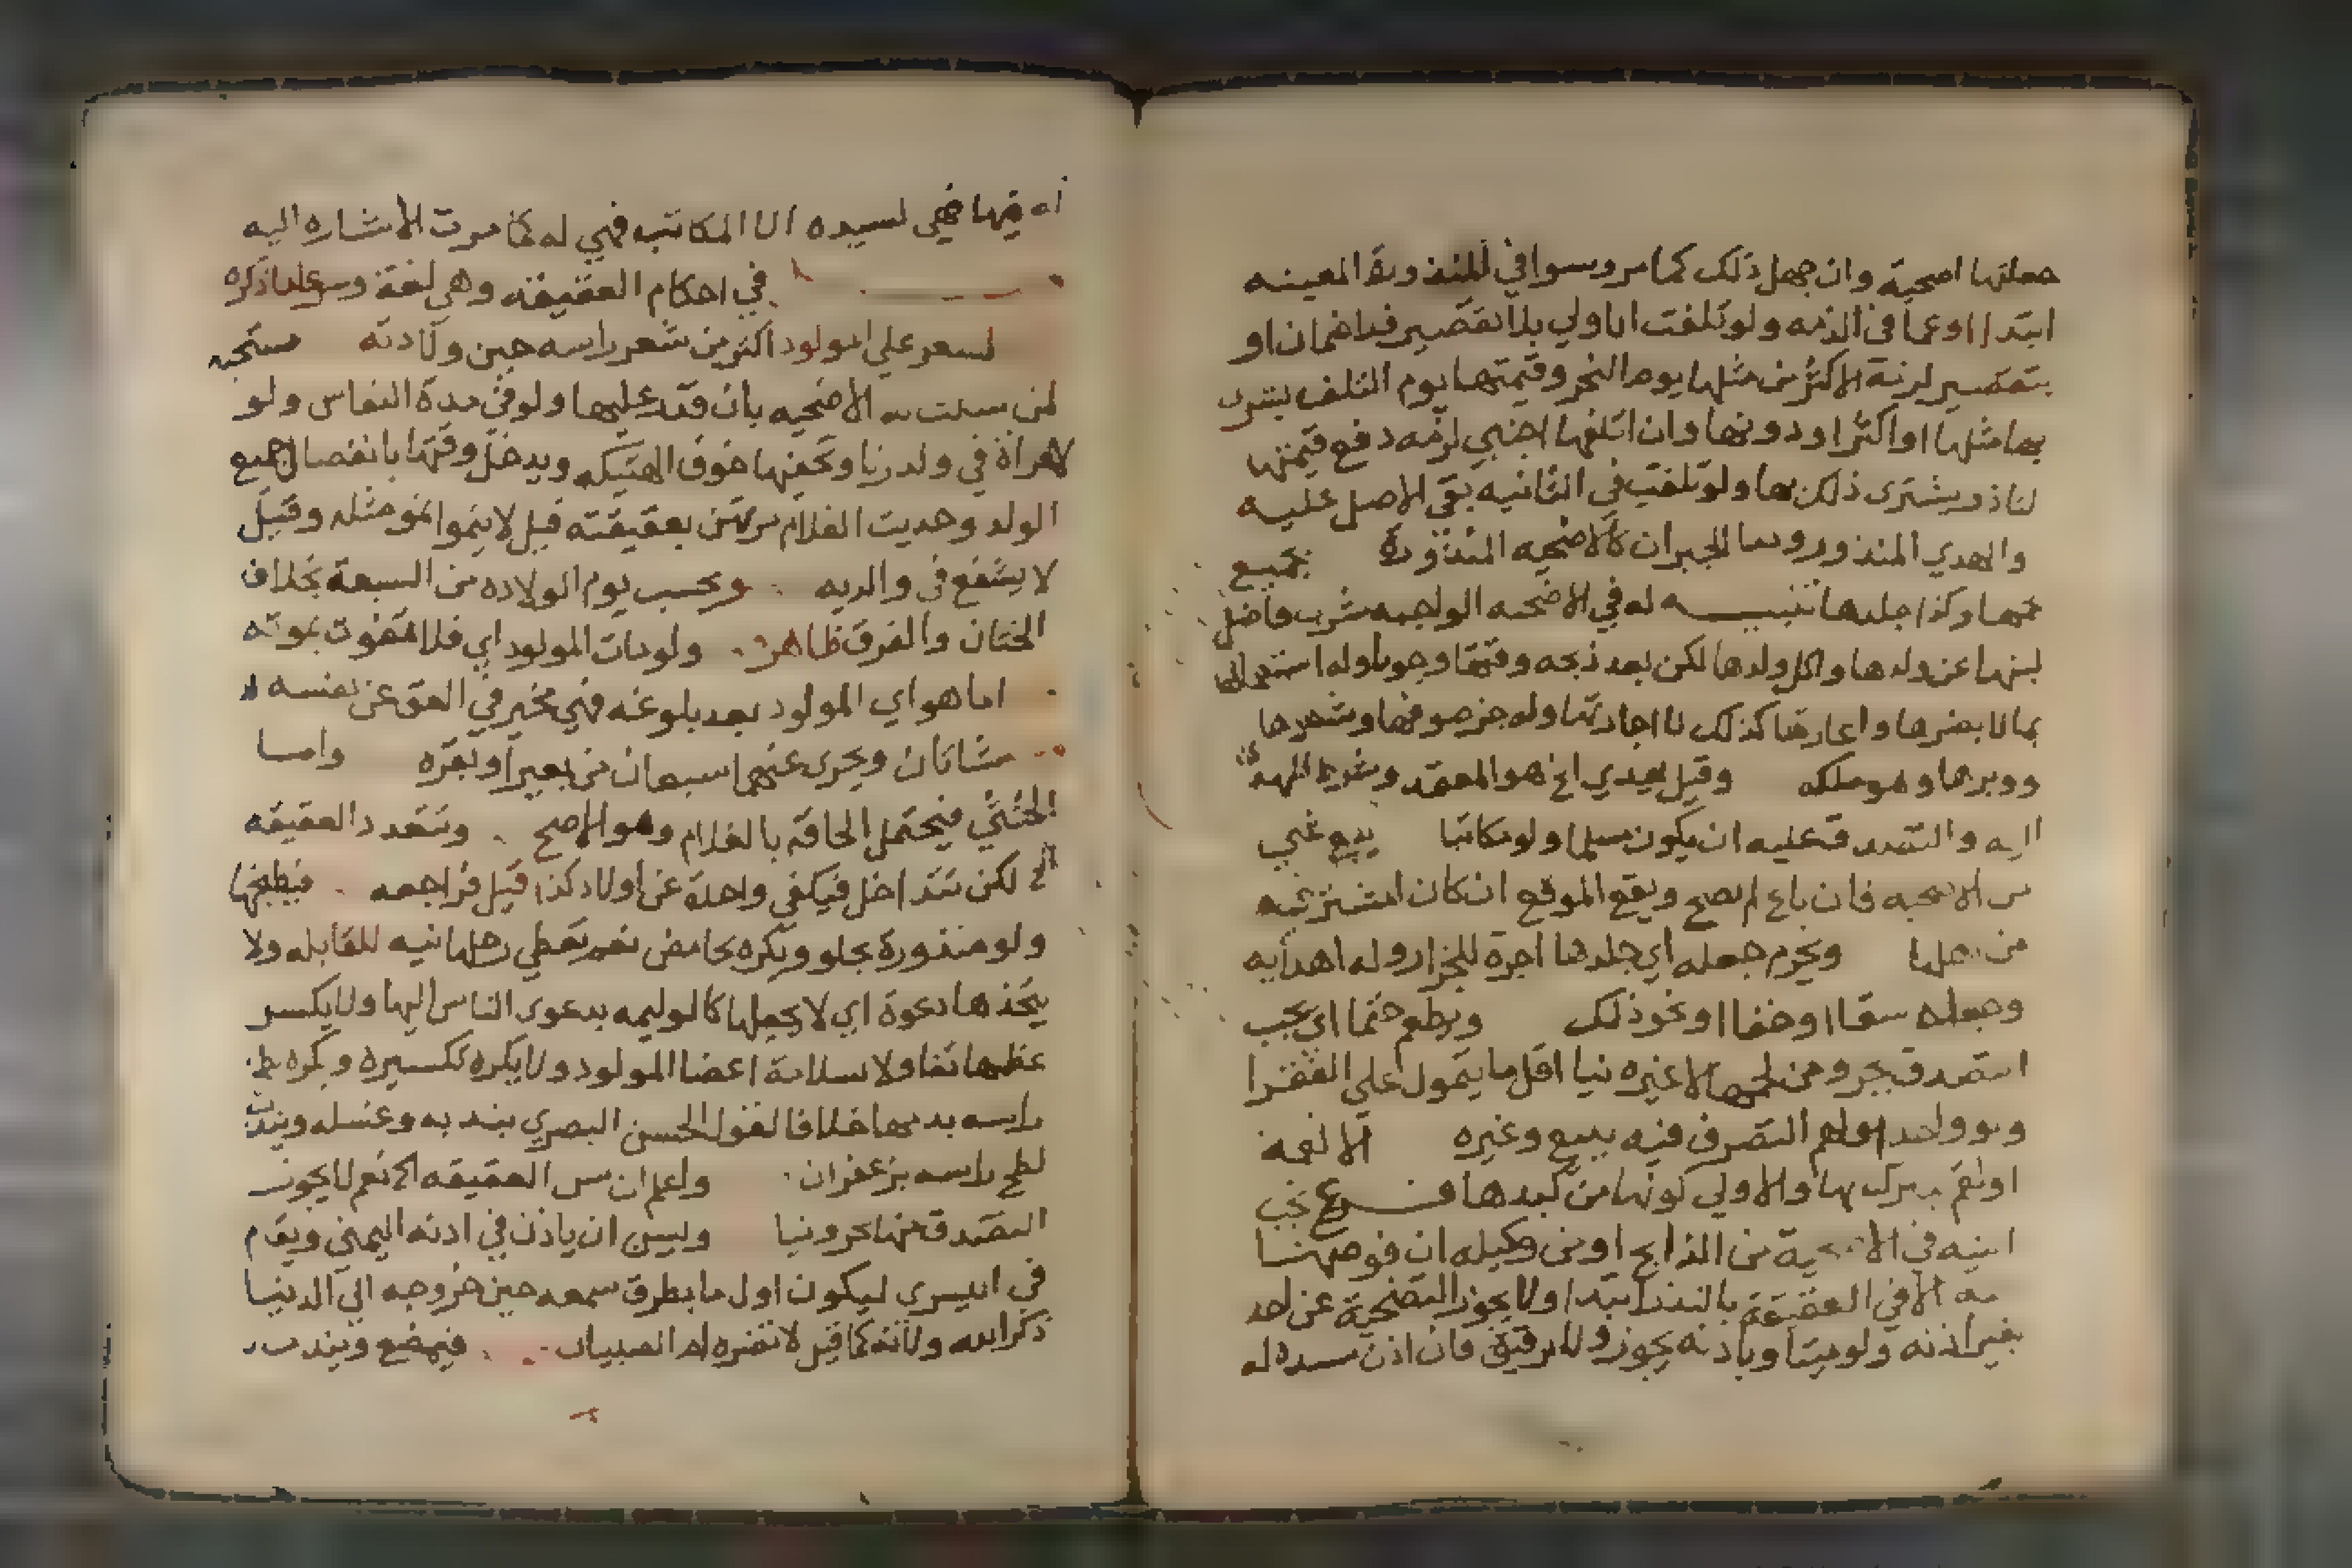 جعلتها اضحية وان جهل ذلك كما مر وسوا في المنذورة المعينه
ابتداا او عما في الذمه ولو تلفت الاولي بلا تقصير فلا ضمان او
بتقصير لزمه الاكثر من مثلها يوم النحر وقيمتها يوم التلف يشتري
بها مثلها او اكثر او دونها وان اتلفها اجنبي لزمه دفع قيمتها
لناذر يشتري ذلك بها ولو تلفت في الثانيه بقي الاصل عليه
والهدي المنذور ودما الجبران كالاضحيه المنذورة بجميع
لحمها وكذا جلدها تنبيه له في الاضحيه الواجبه شرب فاضل
لبنها عن ولدها واكل ولدها لكن بعد ذبحه وقتها وجوبا وله استعمالها
بما لا يضرها واعارتها كذلك لا اجارتها وله جز صوفها وشعرها
ووبرها وهو ملكه وقيل يهدي الخ هو المعتمد وشرط المهدي
اليه والتصدق عليه ان يكون مسلما ولو مكاتبا بيع شي
من الاضحيه فان باع لم يصح ويقع الموقع ان كان المشتري
من اهلها ويحرم جعله اي جلدها اجرة للجزار وله اهدايه
وجعله سقاا او خفا او نحو ذلك ويطعم حتما اي يجب
التصدق بجزو من لحمها لا غيره نيا اقل ما يتمول علي الفقرا
ولو واحد اولهم التصرف فيه ببيع وغيره الا لقمة
او لقم يتبرك بها والاولي كونها من كبدها فرع تجب
النيه في الاضحية من الذابح او من وكيله ان فوضها
اليه الا في العقيقة بالنذر ابتداا ولا يجوز التضحية عن احد
بغير اذنه ولو ميتا وباذنه يجوز ولا لرقيق فان اذن سيده له
له فيها فهي لسيده الا المكاتب فهي له كما مرت الاشاره اليه
في احكام العقيقه وهي لغة وشرعا ما ذكره
لشعر علي المولود اكثر من شعر راسه حين ولادته مستحبه
لمن سنت له الاضحيه بان قدر عليها ولو في مدة النفاس ولو
لامراة في ولد زنا وتخفيها خوف الهتيكه ويدخل وقتها بانفصال جميع
الولد وحديث الغلام مرتهن بعقيقته قيل لا ينموا نمو مثله وقيل
لا يشفع في والديه ويحسب يوم الولاده من السبعة بخلاف
الختان والفرق ظاهر ولو مات المولود اي فلا تفوت بموته
اما هو اي المولود بعد بلوغه فهي مخير في العق عن نفسه
شاتان ويجزي عنهما سبعان من بعير او بقره واما
الخنثي فيحتمل الحاقه بالغلام وهو الاصح وتتعدد العقيقه
الخ لكن تتداخل فيكفي واحدة عن اولاد كذا قيل فراجعه فيطبخها
ولو منذورة بحلو ويكره بحامض نعم تعطي رجلها نيه للقابله ولا
يتخذها دعوة اي لا يجعلها كالوليمه بدعوي الناس اليها ولا يكسر
عظمها تفاولا بسلامة اعضا المولود ولا يكره تكسيره ويكره لطخ
راسه بدمها خلافا لقول الحسن البصري بندبه وغسله ويندب
لطخ راسه بزعفران واعلم ان سن العقيقه الخ نعم لا يجوز
التصدق منها بجزو نيا ويسن ان ياذن في اذنه اليمني ويقام
في اليسري ليكون اول ما يطرق سمعه حين خروجه الي الدنيا
ذكر الله ولانه كما قيل لا تضره ام الصبيان فيمضغ ويندب